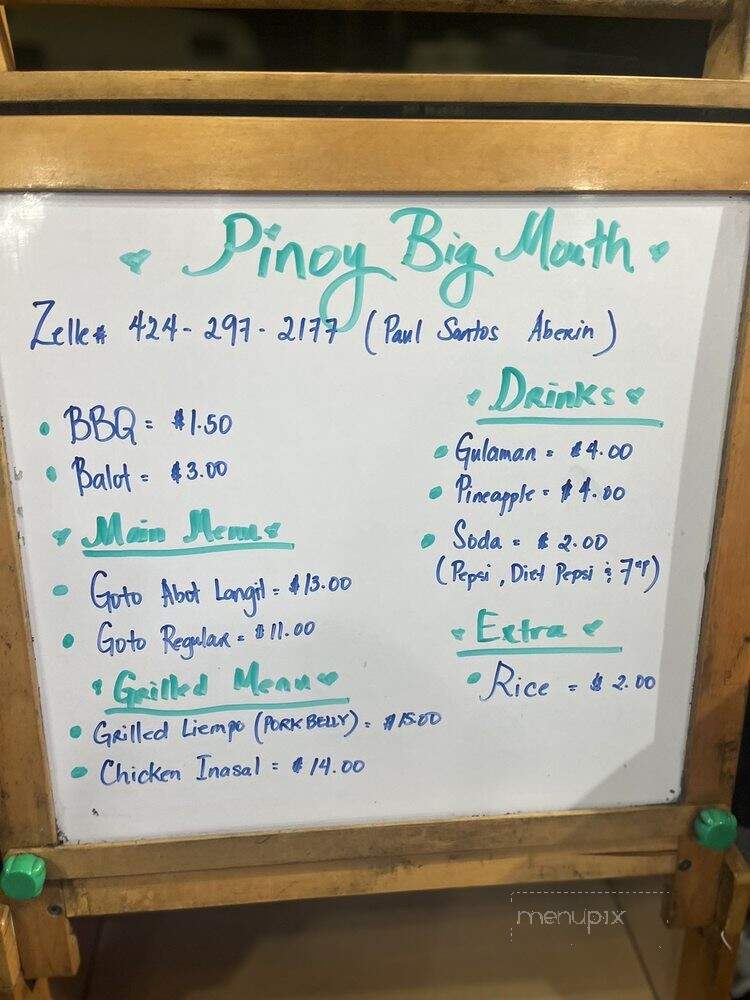 Pinoy Big Mouth
Zelle# 424-297-2177 (Paul Santos Aberin)
• BBQ = $1.50
• Balot = $3.00
Main Menu
• Goto Abot Langit = $13.00
• Goto Regular = $11.00
Grilled Menu
• Grilled Liempo (PORK BELLY) = $15.00
• Chicken Inasal = $14.00
Drinks
• Gulaman = $4.00
• Pineapple = $4.00
• Soda = $2.00
(Pepsi, Diet Pepsi & 7up)
Extra
• Rice = $2.00
menupix